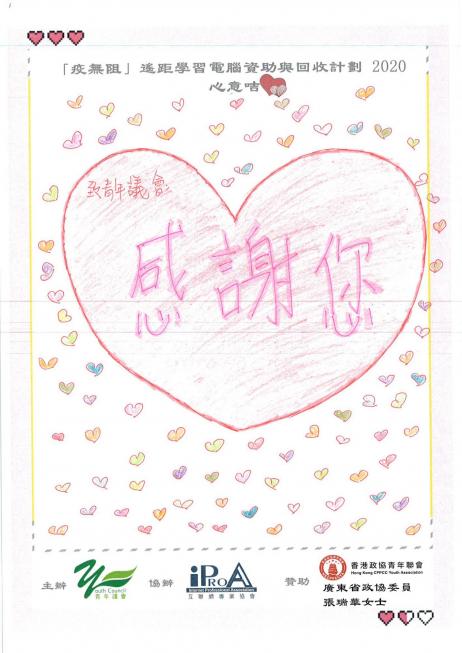 「疫無阻」遙距學習電腦資助與回收計劃 2020
心意咭
致青年議會:
感謝您
主辦
Youth Council
青年議會
協辦
iProA
Internet Professional Association
互聯網專業協會
贊助
香港政協青年聯會
Hong Kong CPPCC Youth Association
廣東省政協委員
張瑞華女士